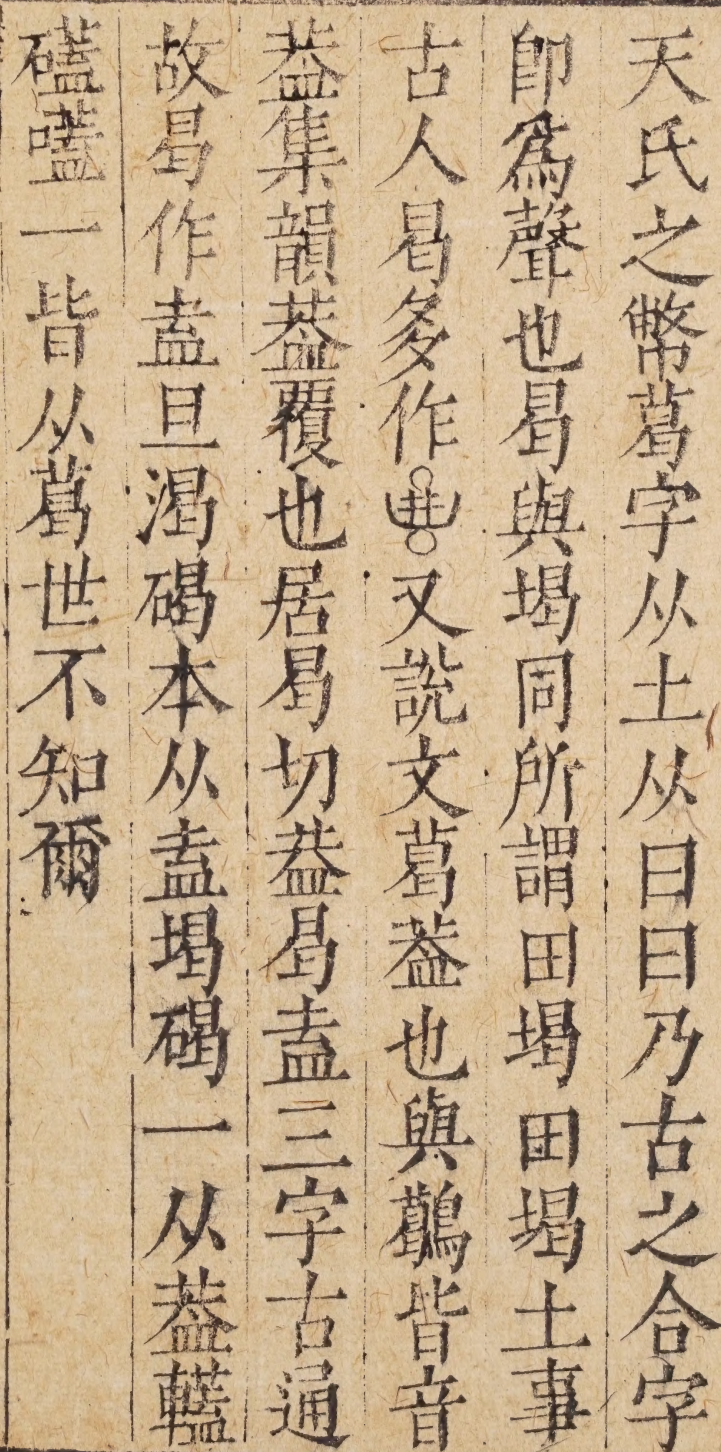 天氏之幣葛字从土从曰曰乃古之合字
卽爲聲也曷與堨同所謂田堨田堨土事
古人曷多作又說文葛葢也與鶡皆音
葢集韻葢覆也居曷切葢曷盍三字古通
故曷作盍旦渴碣本从盍堨碣一从葢轞
礚嗑一皆从葛世不知爾